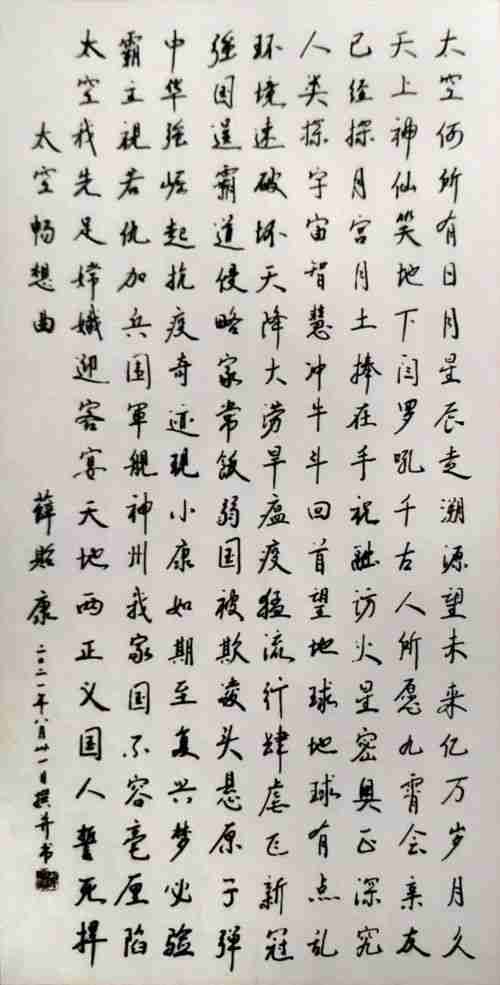 太空何所有日月星辰走溯源望未来亿万岁月久
天上神仙笑地下闫罗吼千古人所愿九霄会亲友
已经探月宫月土捧在手祝融访火星密奥正深究
人类探宇宙智慧冲牛斗回首望地球地球有点乱
环境速破坏天降大涝旱瘟疫猛流行肆虐飞新冠
强国逞霸道侵略家常饭弱国被欺凌头悬原子弹
中华强崛起抗疫奇迹现小康如期至复兴梦必验
霸主视若仇加兵围軍舰神州我家国不容毫厘陷
太空我先足嫦娥迎客宴天地两正义国人誓死捍
太空畅想曲
薛贻康
二〇二一年八月卅一日撰并书